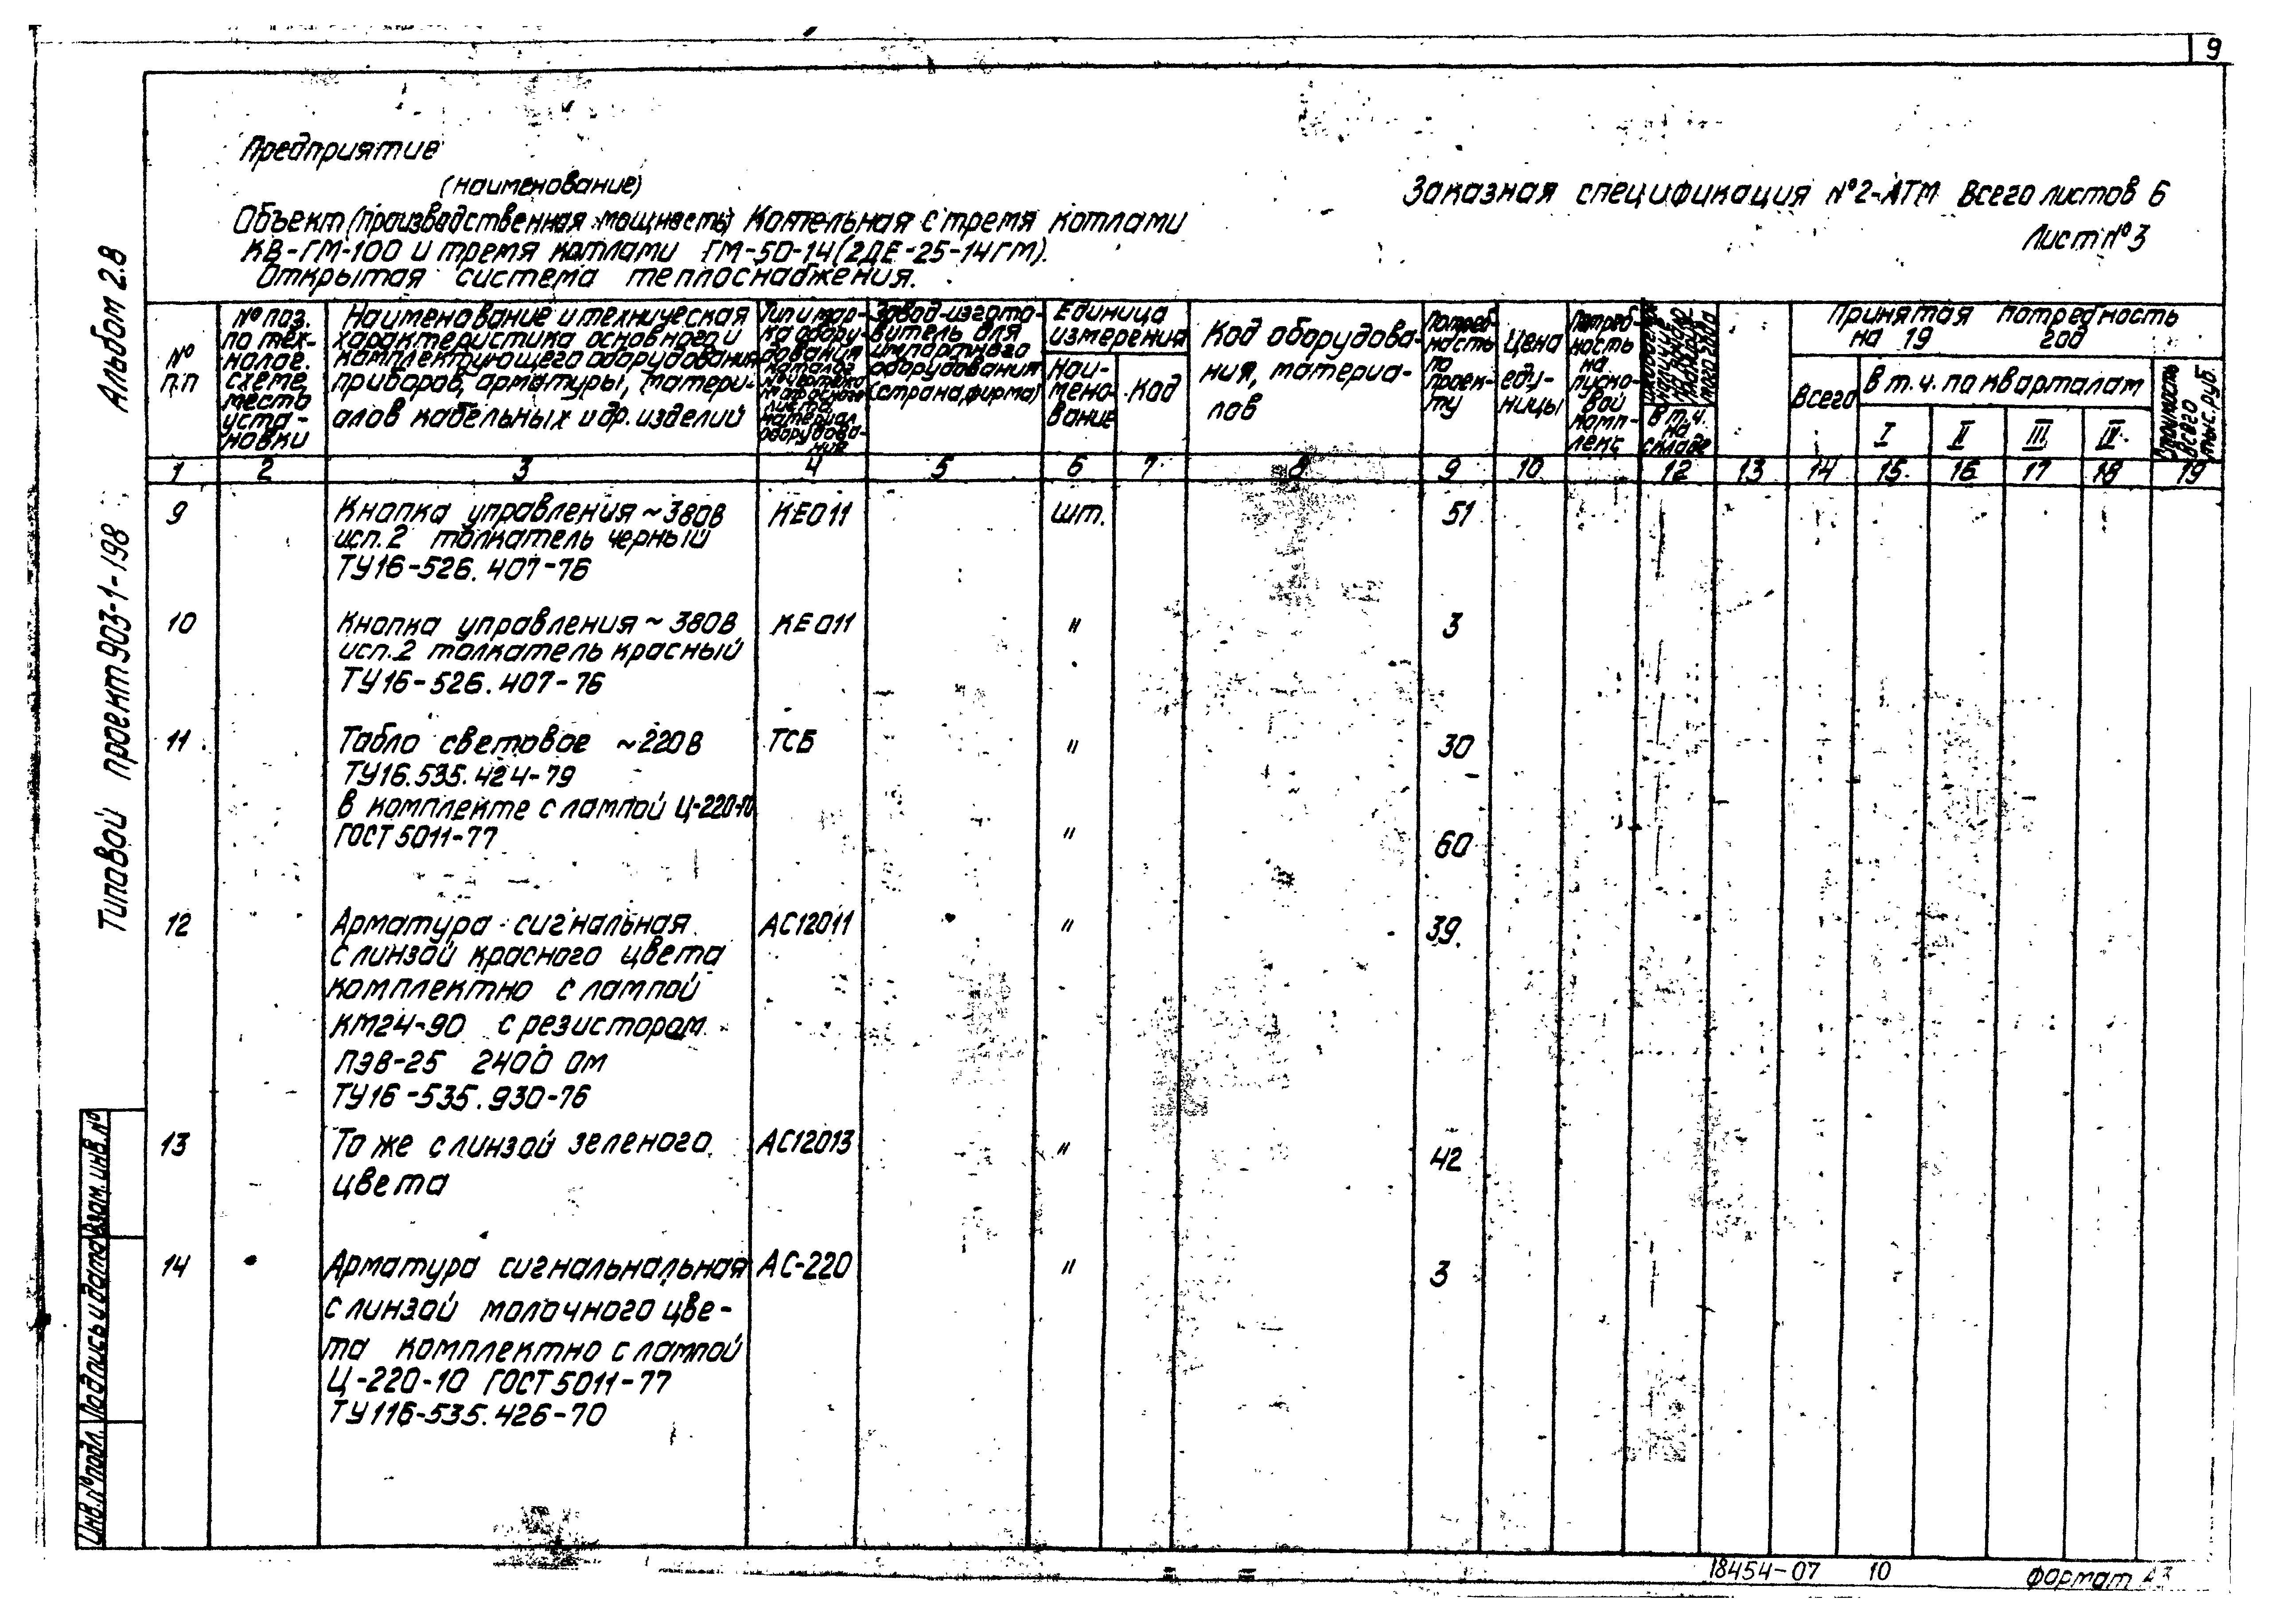 9
Предприятие
(наименование)
Заказная спецификация №2-АТМ Всего листов 6
Лист №3
Объект (производственная мощность) Котельная с тремя котлами
КВ-ГМ-100 и тремя котлами ГМ-50-14 (2ДЕ-25-14ГМ).
Открытая система теплоснабжения.
Альбом 2.8
Типовой проект 903-1-198
№
п.п
№ поз.
по тех-
нолог.
схеме,
место
уста-
новки
Наименование и техническая
характеристика основного и
комплектующего оборудования,
приборов, арматуры, матери-
алов кабельных и др. изделий
Тип и мар-
ка обору-
дования
каталог
№ чертежа
опросного
листа
материал
оборудова-
ния
Завод-изгото-
витель для
импортного
оборудования
(страна, фирма)
Единица
измерения
Наи-
мено-
вание
Код
Код оборудова-
ния, материа-
лов
Потреб-
ность
по
проек-
ту
Цена
еду-
ницы
Потреб-
ность
на
пуско-
вой
комп-
лекс
в т.ч.
на
складе
Принятая потребность
на 19 год
Всего
В т.ч. по кварталам
I II III IV
Стоимость
всего
тыс. руб.
1 2 3 4 5 6 7 8 9 10 12 13 14 15 16 17 18 19
9 Кнопка управления ~380В КЕ011 шт. 51
исп.2 толкатель черный
ТУ16-526.407-76
10 Кнопка управления ~380В КЕ011 " 3
исп.2 толкатель красный
ТУ16-526.407-76
11 Табло световое ~220В ТСБ " 30
ТУ16.535.424-79
в комплекте с лампой Ц-220-10
ГОСТ 5011-77 " 60
12 Арматура сигнальная АС12011 " 39.
с линзой красного цвета
комплектно с лампой
КМ24-90 с резистором
ПЭВ-25 2400 Ом
ТУ16-535.930-76
13 То же с линзой зеленого АС12013 " 42
цвета
14 Арматура сигнальнальная АС-220 " 3
с линзой молочного цве-
та комплектно с лампой
Ц-220-10 ГОСТ 5011-77
ТУ116-535.426-70
Взам. инв. №
Подпись и дата
Инв. № подл.
18454-07 10 Формат А3